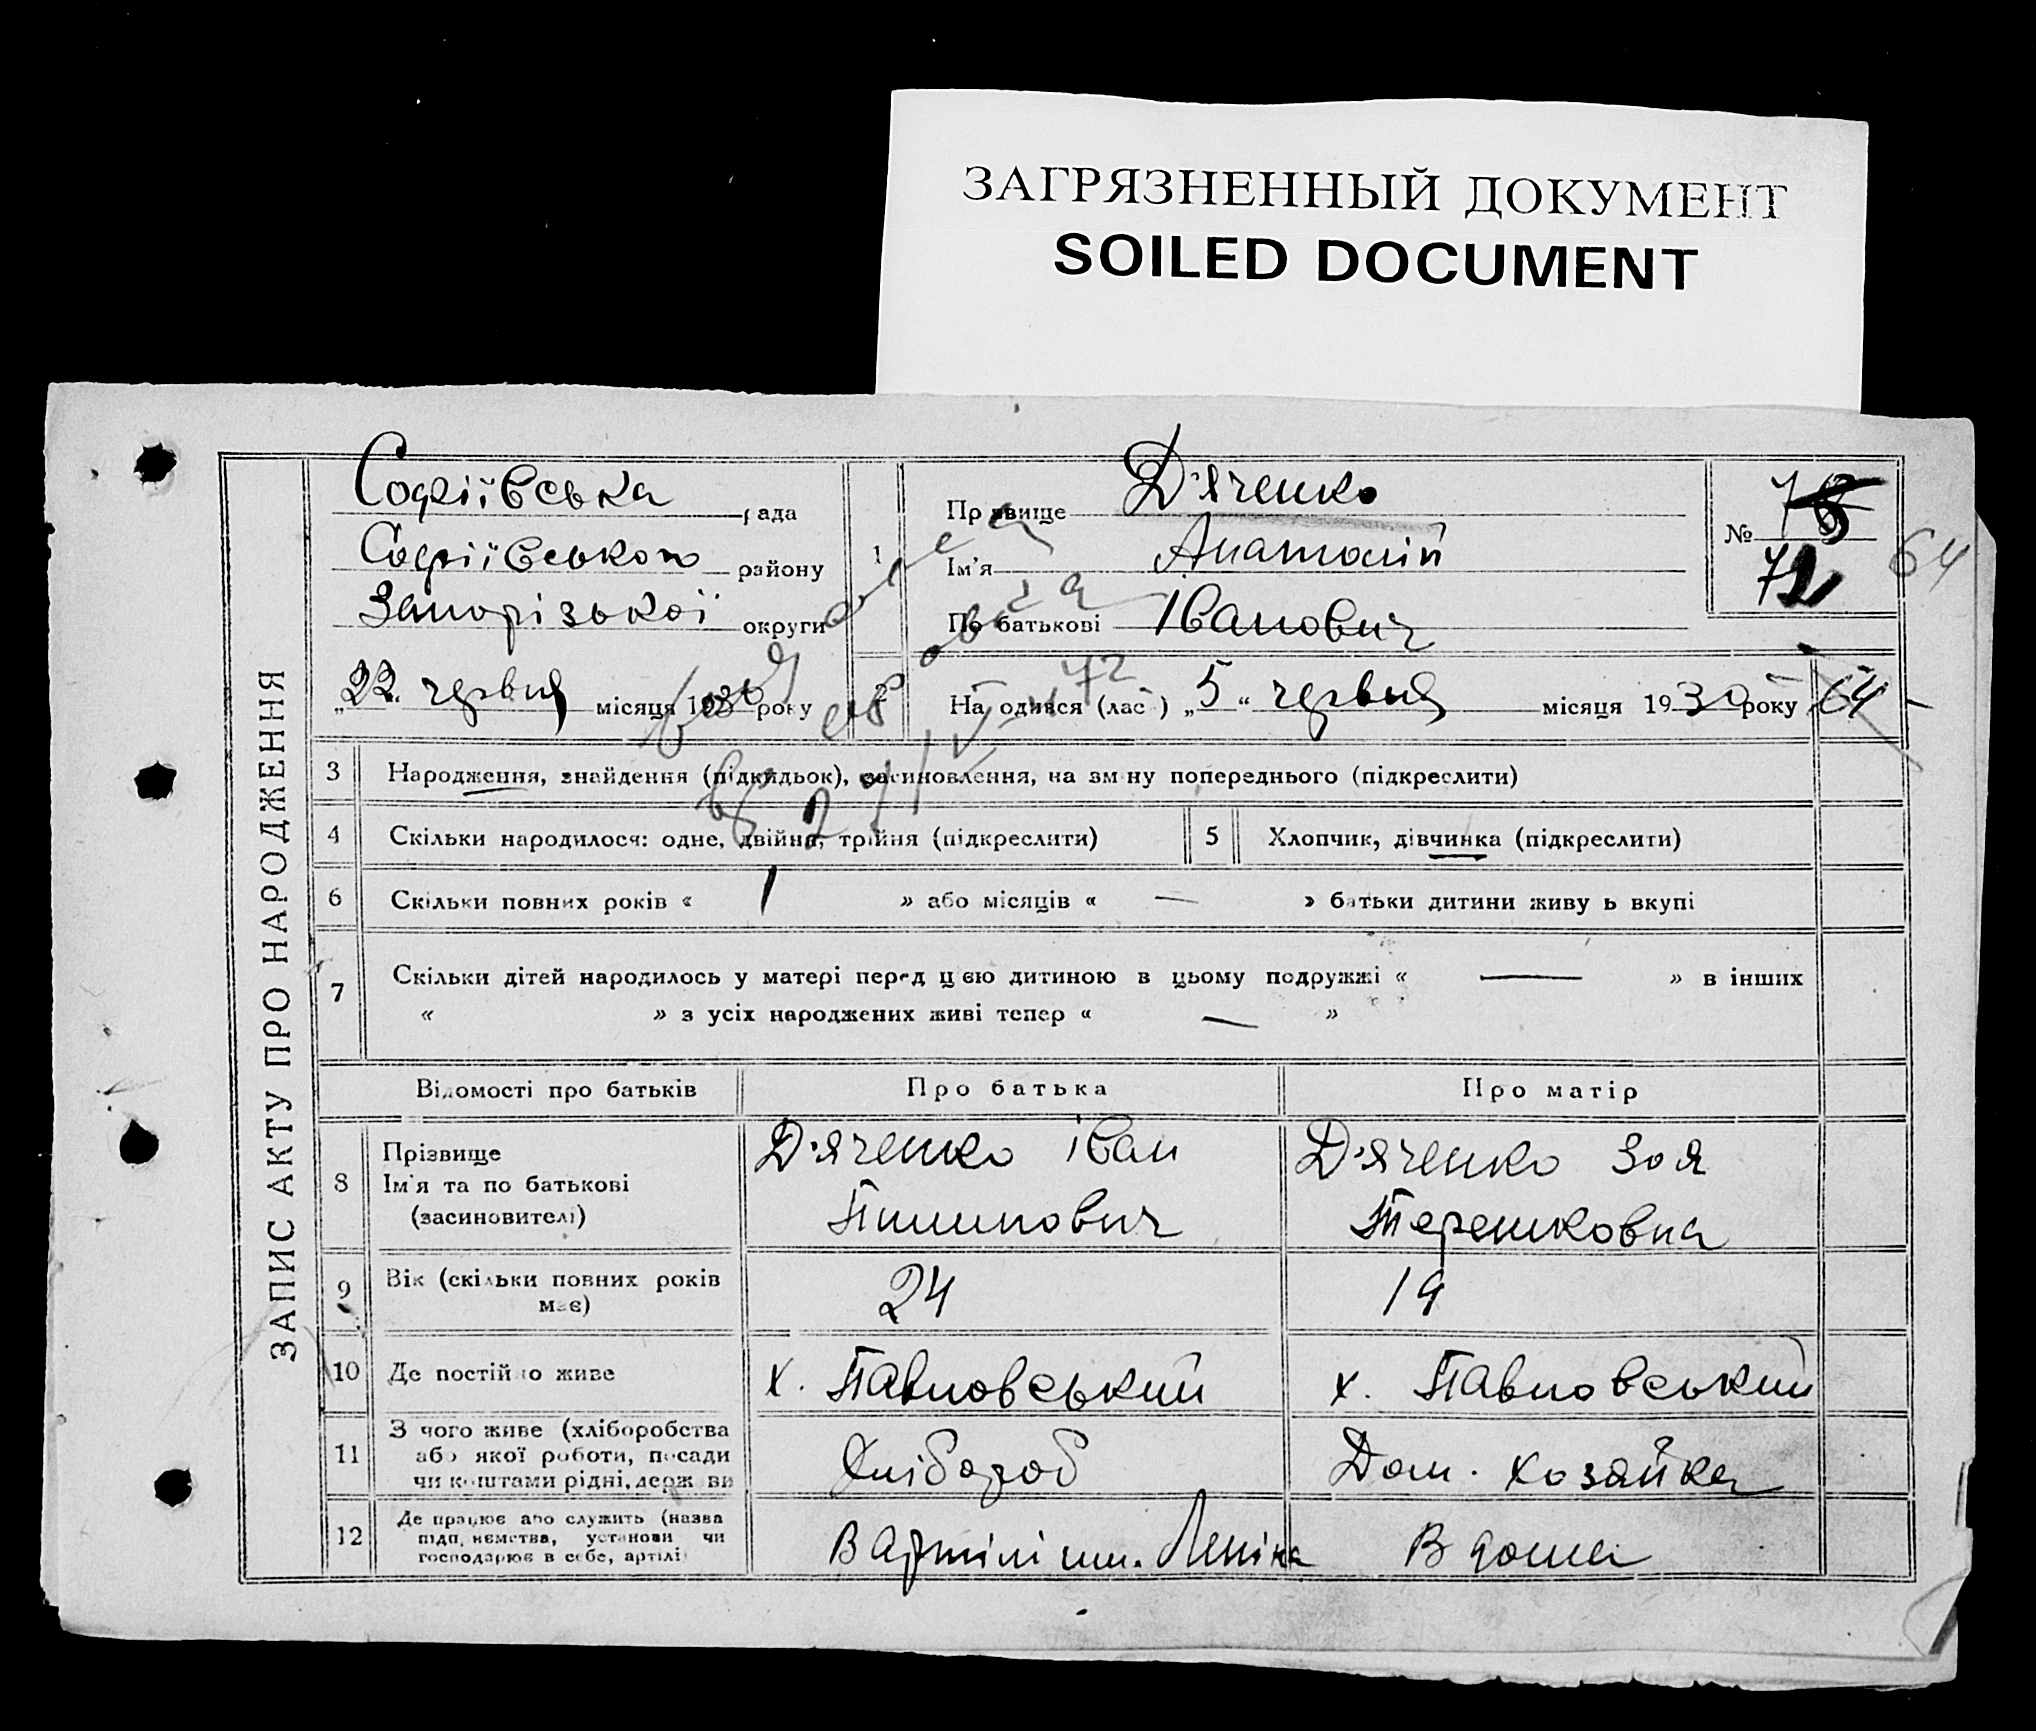 ЗАГРЯЗНЕННЫЙ ДОКУМЕНТ
SOILED DOCUMENT
ЗАПИС АКТУ ПРО НАРОДЖЕННЯ
Софіївська рада
Софіївського району
Запорізької округи
„22“ червня місяця 1930 року
1
Прізвище Д'яченко
Ім'я Анатолій
По батькові Іванович
№ 73
72
64
2
Народився (лась) „5“ червня місяця 1930 року
64
72
3 Народження, знайдення (підкидьок), засиновлення, на зміну попереднього (підкреслити)
4 Скільки народилося: одне, двійня, трійня (підкреслити) 5 Хлопчик, дівчинка (підкреслити)
6 Скільки повних років « 1 » або місяців « — » батьки дитини живуть вкупі
7 Скільки дітей народилось у матері перед цією дитиною в цьому подружжі « — » в інших
« » з усіх народжених живі тепер « — »
Відомості про батьків Про батька Про матір
8 Прізвище
Ім'я та по батькові
(засиновителі)
Д'яченко Іван
Пилипович
Д'яченко Зоя
Терешковна
9 Вік (скільки повних років
має)
24
19
10 Де постійно живе х. Павловський х. Павловський
11 З чого живе (хліборобства
або якої роботи, посади
чи коштами рідні, держави
Хлібороб
Дом. хозяйка
12 Де працює або служить (назва
підприємства, установи чи
господарює в себе, артілі)
В артілі им. Леніна
В дома